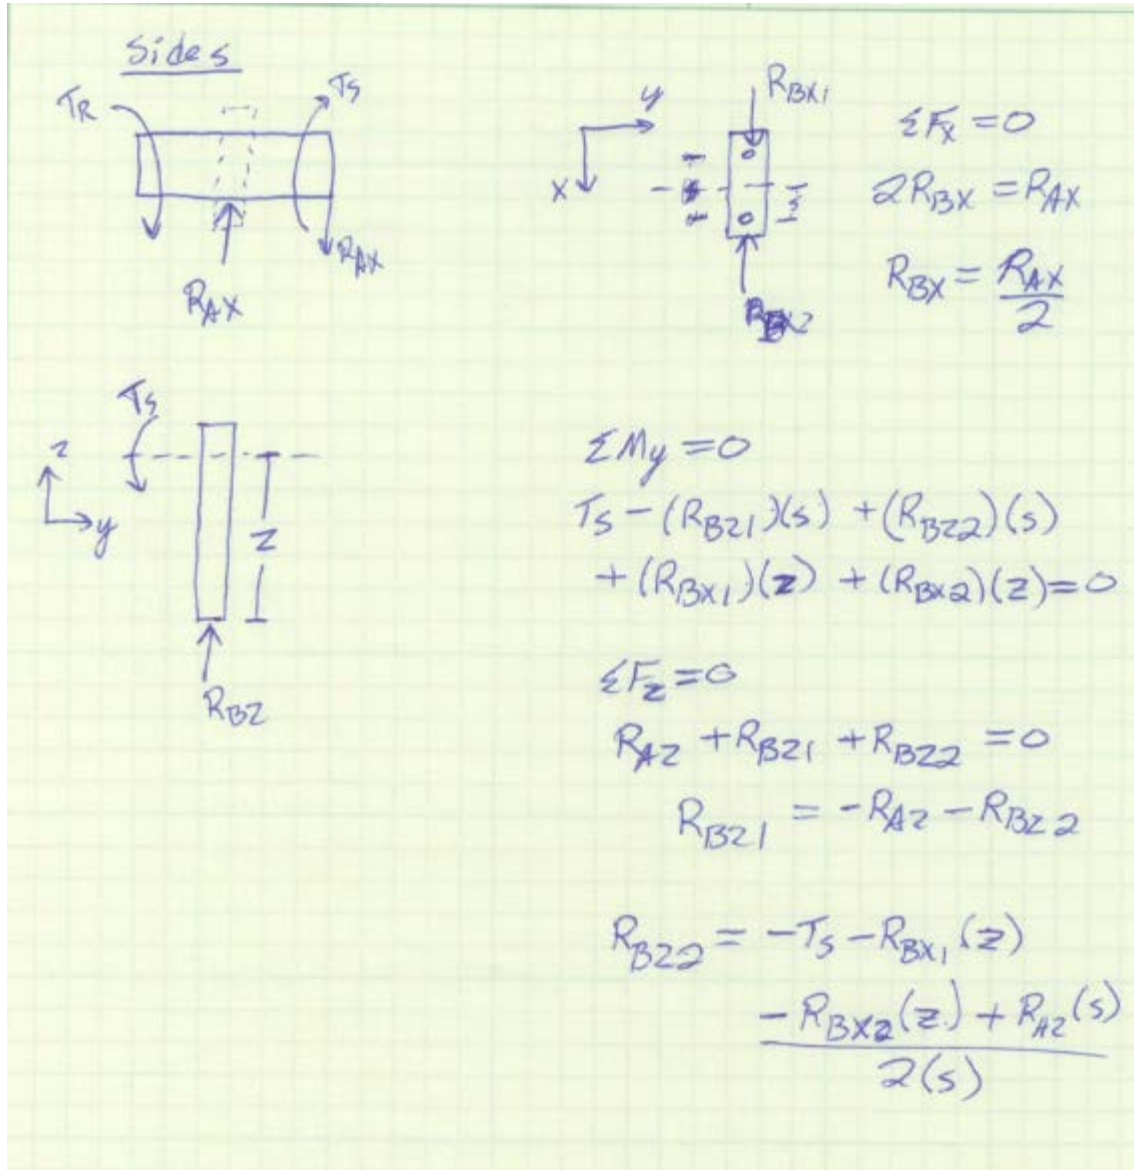 Sides
T_R
T_S
R_AX
R_AX
y
x
R_BX1
s
ΣF_x = 0
2R_BX = R_AX
R_BX = R_AX / 2
T_S
z
y
z
R_BZ
ΣM_y = 0
T_S - (R_BZ1)(s) + (R_BZ2)(s)
+ (R_BX1)(z) + (R_BX2)(z) = 0
ΣF_z = 0
R_AZ + R_BZ1 + R_BZ2 = 0
R_BZ1 = -R_AZ - R_BZ2
R_BZ2 = -T_S - R_BX1(z)
-R_BX2(z) + R_AZ(s)
2(s)